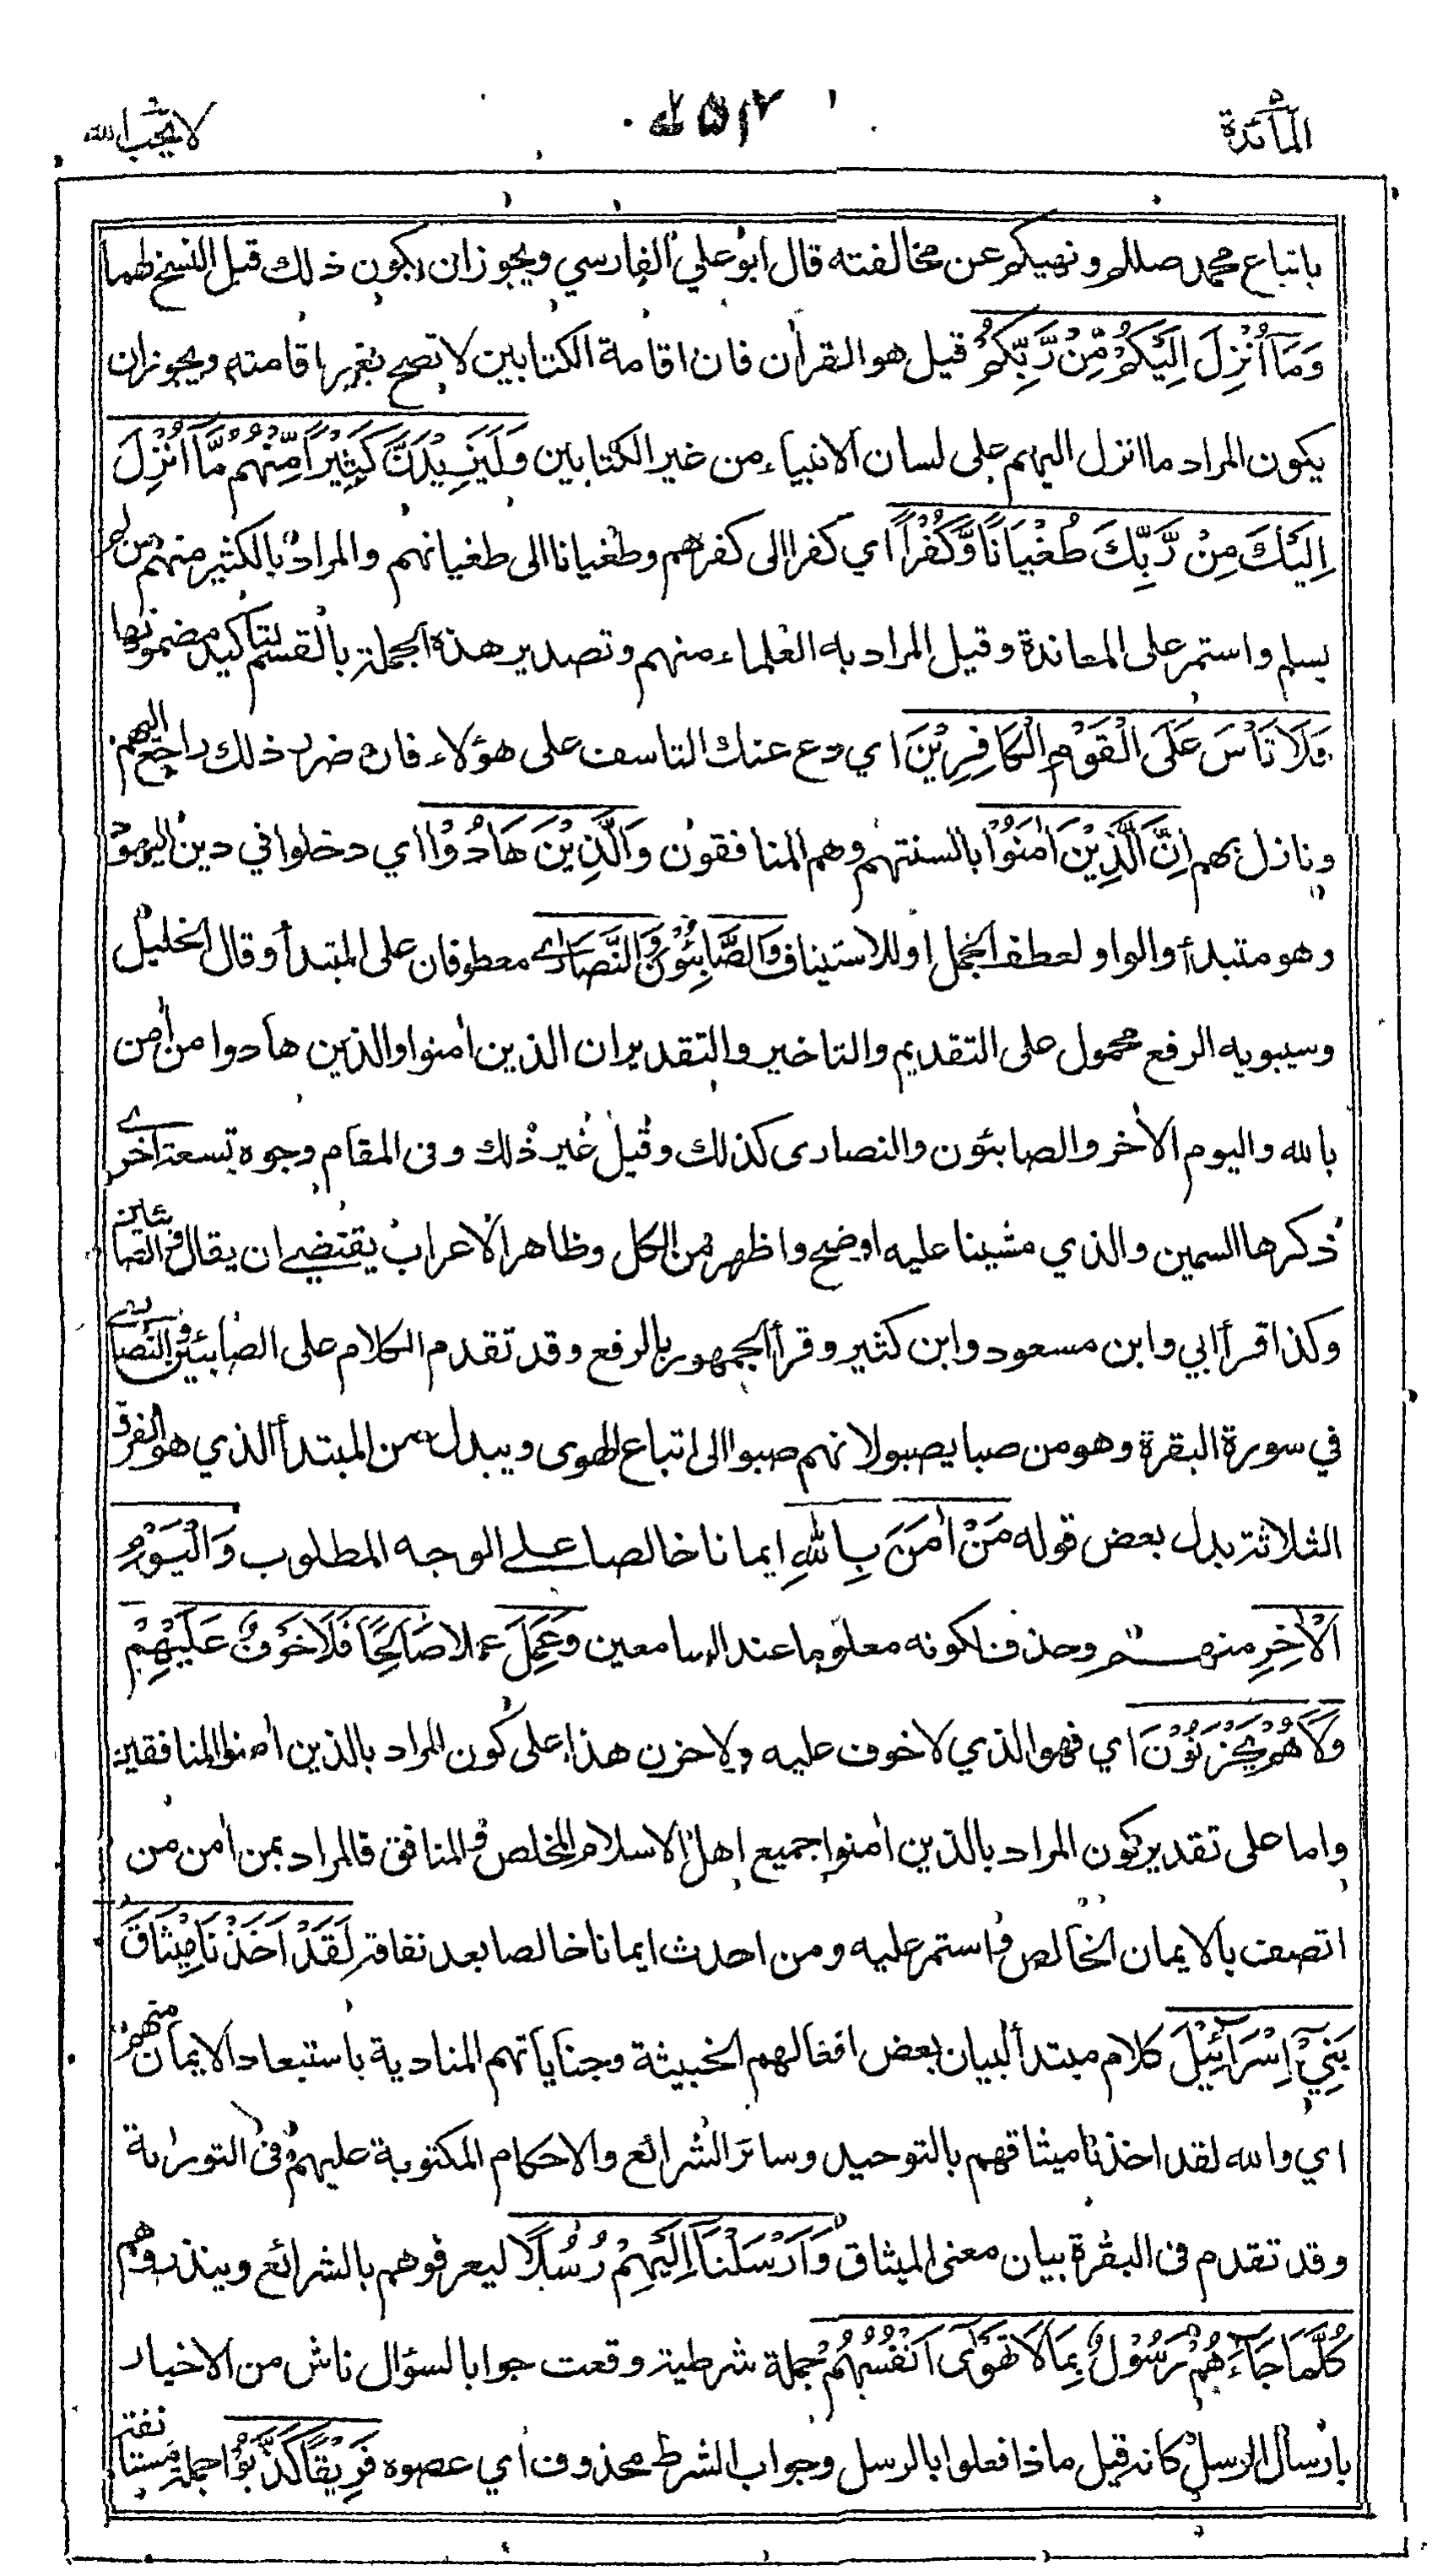 المآئدة
٧٥٢
لا يحب الله
باتباع محمد صللم ونهيكم عن مخالفته قال ابو علي الفارسي ويجوز ان يكون ذلك قبل النسخ لهما
وَمَآ اُنْزِلَ اِلَيْكُمْ مِّنْ رَّبِّكُمْ قيل هو القرأن فان اقامة الكتابين لا تصح بغير اقامته ويجوز ان
يكون المراد ما انزل اليهم على لسان الانبياء من غير الكتابين وَلَيَزِيْدَنَّ كَثِيْرًا مِّنْهُمْ مَّآ اُنْزِلَ
اِلَيْكَ مِنْ رَّبِّكَ طُغْيَانًا وَّكُفْرًا اي كفرا الى كفرهم وطغيانا الى طغيانهم والمراد بالكثير منهم من لم
يسلم واستمر على المعاندة وقيل المراد به العلماء منهم وتصدير هذه الجملة بالقسم لتأكيد مضمونها
فَلَا تَاْسَ عَلَى الْقَوْمِ الْكَافِرِيْنَ اي دع عنك التاسف على هؤلاء فان ضرر ذلك راجع اليهم
ونازل بهم اِنَّ الَّذِيْنَ اٰمَنُوْا بالسنتهم وهم المنافقون وَالَّذِيْنَ هَادُوْا اي دخلوا في دين اليهود
وهو متبدأ والواو لعطف الجمل او للاستيناف وَالصَّابِئُوْنَ وَالنَّصَارٰى معطوفان على المبتدأ وقال الخليل
وسيبويه الرفع محمول على التقديم والتاخير والتقدير ان الذين اٰمنوا والذين هادوا من اٰمن
بالله واليوم الاٰخر والصابئون والنصارى كذلك وقيل غير ذلك وفى المقام وجوه تسعة اخرى
ذكرها السمين والذي مشينا عليه اوضح واظهر من الكل وظاهر الاعراب يقتضي ان يقال والصابئين
وكذا قرأ ابي وابن مسعود وابن كثير وقرأ الجمهور بالرفع وقد تقدم الكلام على الصابئين والنصارى
في سورة البقرة وهو من صبا يصبو لانهم صبوا الى اتباع الهوى ويبدل من المبتدأ الذي هو الفرق
الثلاثة بدل بعض قوله مَنْ اٰمَنَ بِاللّٰهِ ايمانا خالصا على الوجه المطلوب وَالْيَوْمِ
الْاٰخِرِ منهم وحذف لكونه معلوما عند السامعين وَعَمِلَ عملا صَالِحًا فَلَا خَوْفٌ عَلَيْهِمْ
وَلَا هُمْ يَحْزَنُوْنَ اي فهو الذي لا خوف عليه ولا حزن هذا على كون المراد بالذين اٰمنوا المنافقين
واما على تقدير كون المراد بالذين اٰمنوا جميع اهل الاسلام المخلص والمنافق فالمراد بمن اٰمن من
اتصف بالايمان الخالص واستمر عليه ومن احدث ايمانا خالصا بعد نفاقه لَقَدْ اَخَذْنَا مِيْثَاقَ
بَنِيْٓ اِسْرَآئِيْلَ كلام مبتدأ لبيان بعض افعالهم الخبيثة وجناياتهم المنادية باستبعاد الايمان منهم
اي والله لقد اخذنا ميثاقهم بالتوحيد وسائر الشرائع والاحكام المكتوبة عليهم فى التورٰىة
وقد تقدم فى البقرة بيان معنى الميثاق وَاَرْسَلْنَآ اِلَيْهِمْ رُسُلًا ليعرفوهم بالشرائع وينذروهم
كُلَّمَا جَآءَهُمْ رَسُوْلٌۢ بِمَا لَا تَهْوٰٓى اَنْفُسُهُمْ جملة شرطية وقعت جوابا لسؤال ناش من الاخبار
بارسال الرسل كانه قيل ماذا فعلوا بالرسل وجواب الشرط محذوف اي عصوه فَرِيْقًا كَذَّبُوْا جملة مستانفة